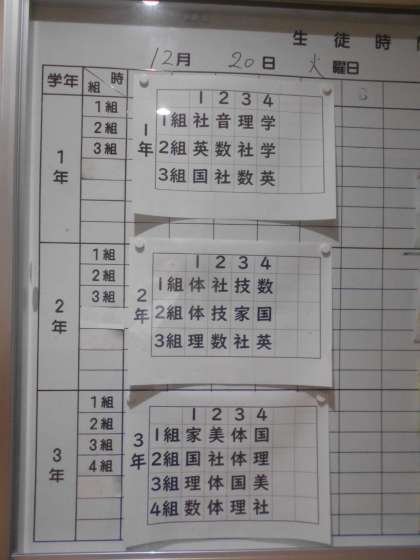 生徒時
12月 20日 火曜日
学年 組 時
1年
1組
2組
3組
1年
1 2 3 4
1組 社 音 理 学
2組 英 数 社 学
3組 国 社 数 英
2年
1組
2組
3組
2年
1 2 3 4
1組 体 社 技 数
2組 体 技 家 国
3組 理 数 社 英
3年
1組
2組
3組
4組
3年
1 2 3 4
1組 家 美 体 国
2組 国 社 体 理
3組 理 体 国 美
4組 数 体 理 社